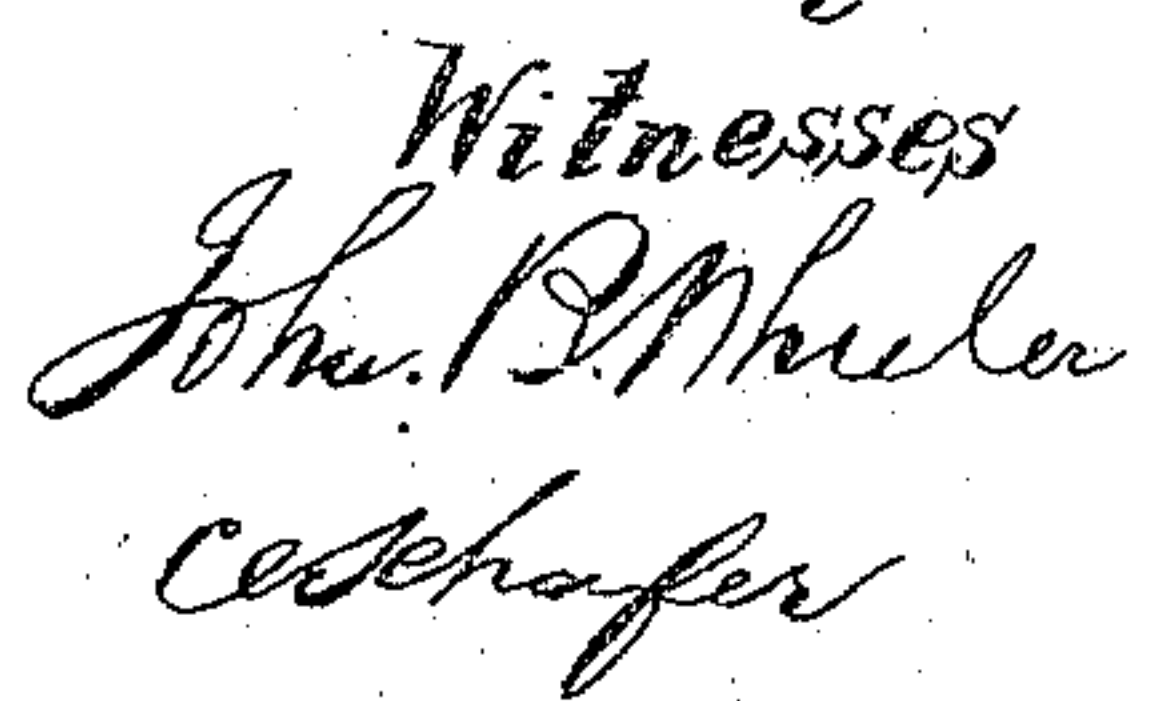 Witnesses
John. B. Wheeler
C Schafer